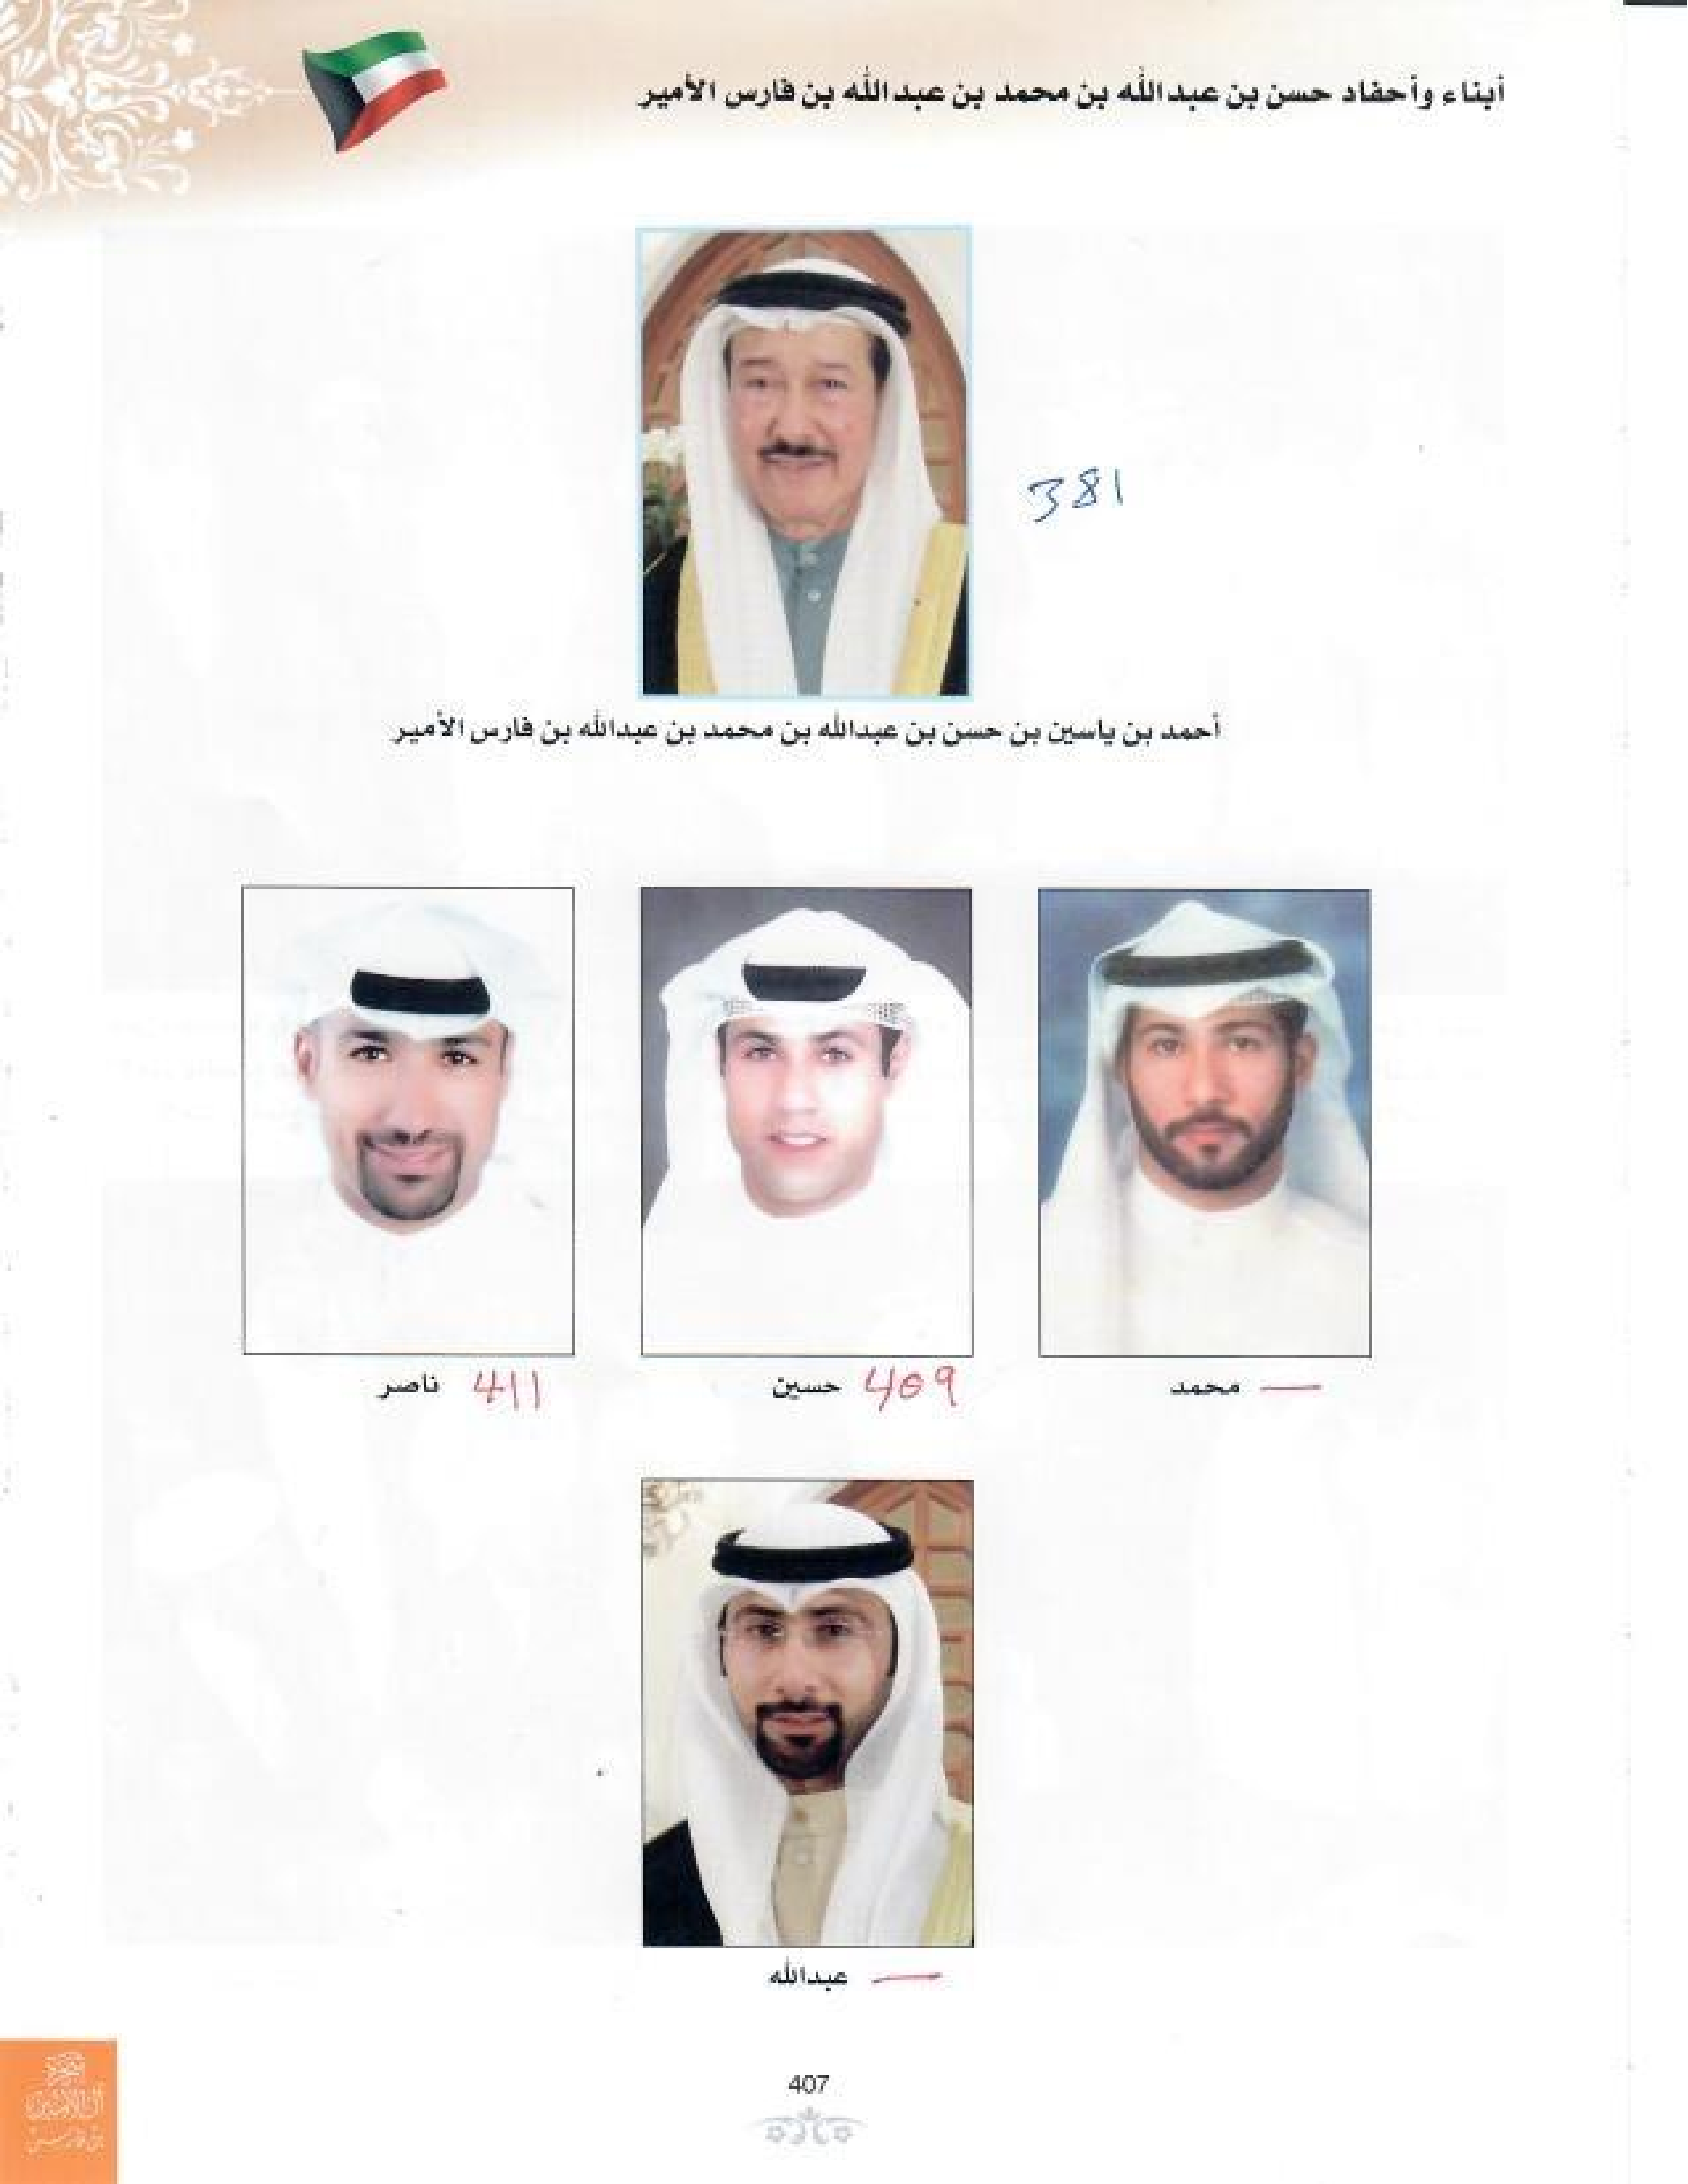 أبناء وأحفاد حسن بن عبدالله بن محمد بن عبدالله بن فارس الأمير
381
أحمد بن ياسين بن حسن بن عبدالله بن محمد بن عبدالله بن فارس الأمير
محمد —
حسين 409
ناصر 411
عبدالله —
407